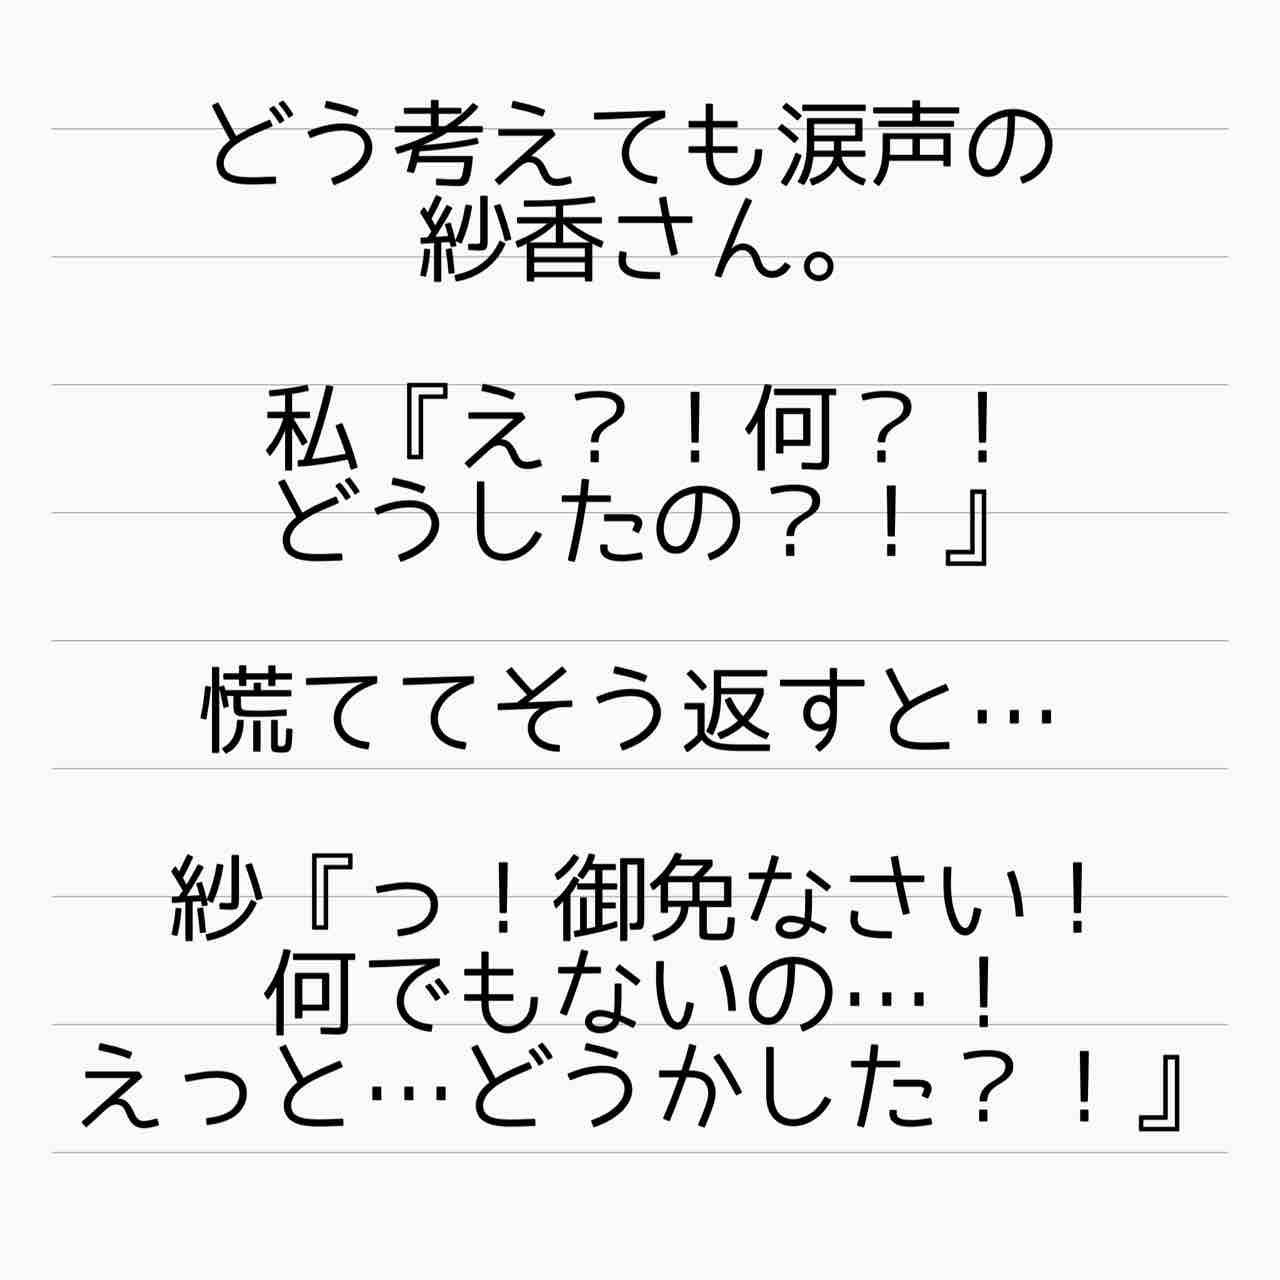 どう考えても涙声の
紗香さん。
私『え？！何？！
どうしたの？！』
慌ててそう返すと…
紗『っ！御免なさい！
何でもないの…！
えっと…どうかした？！』